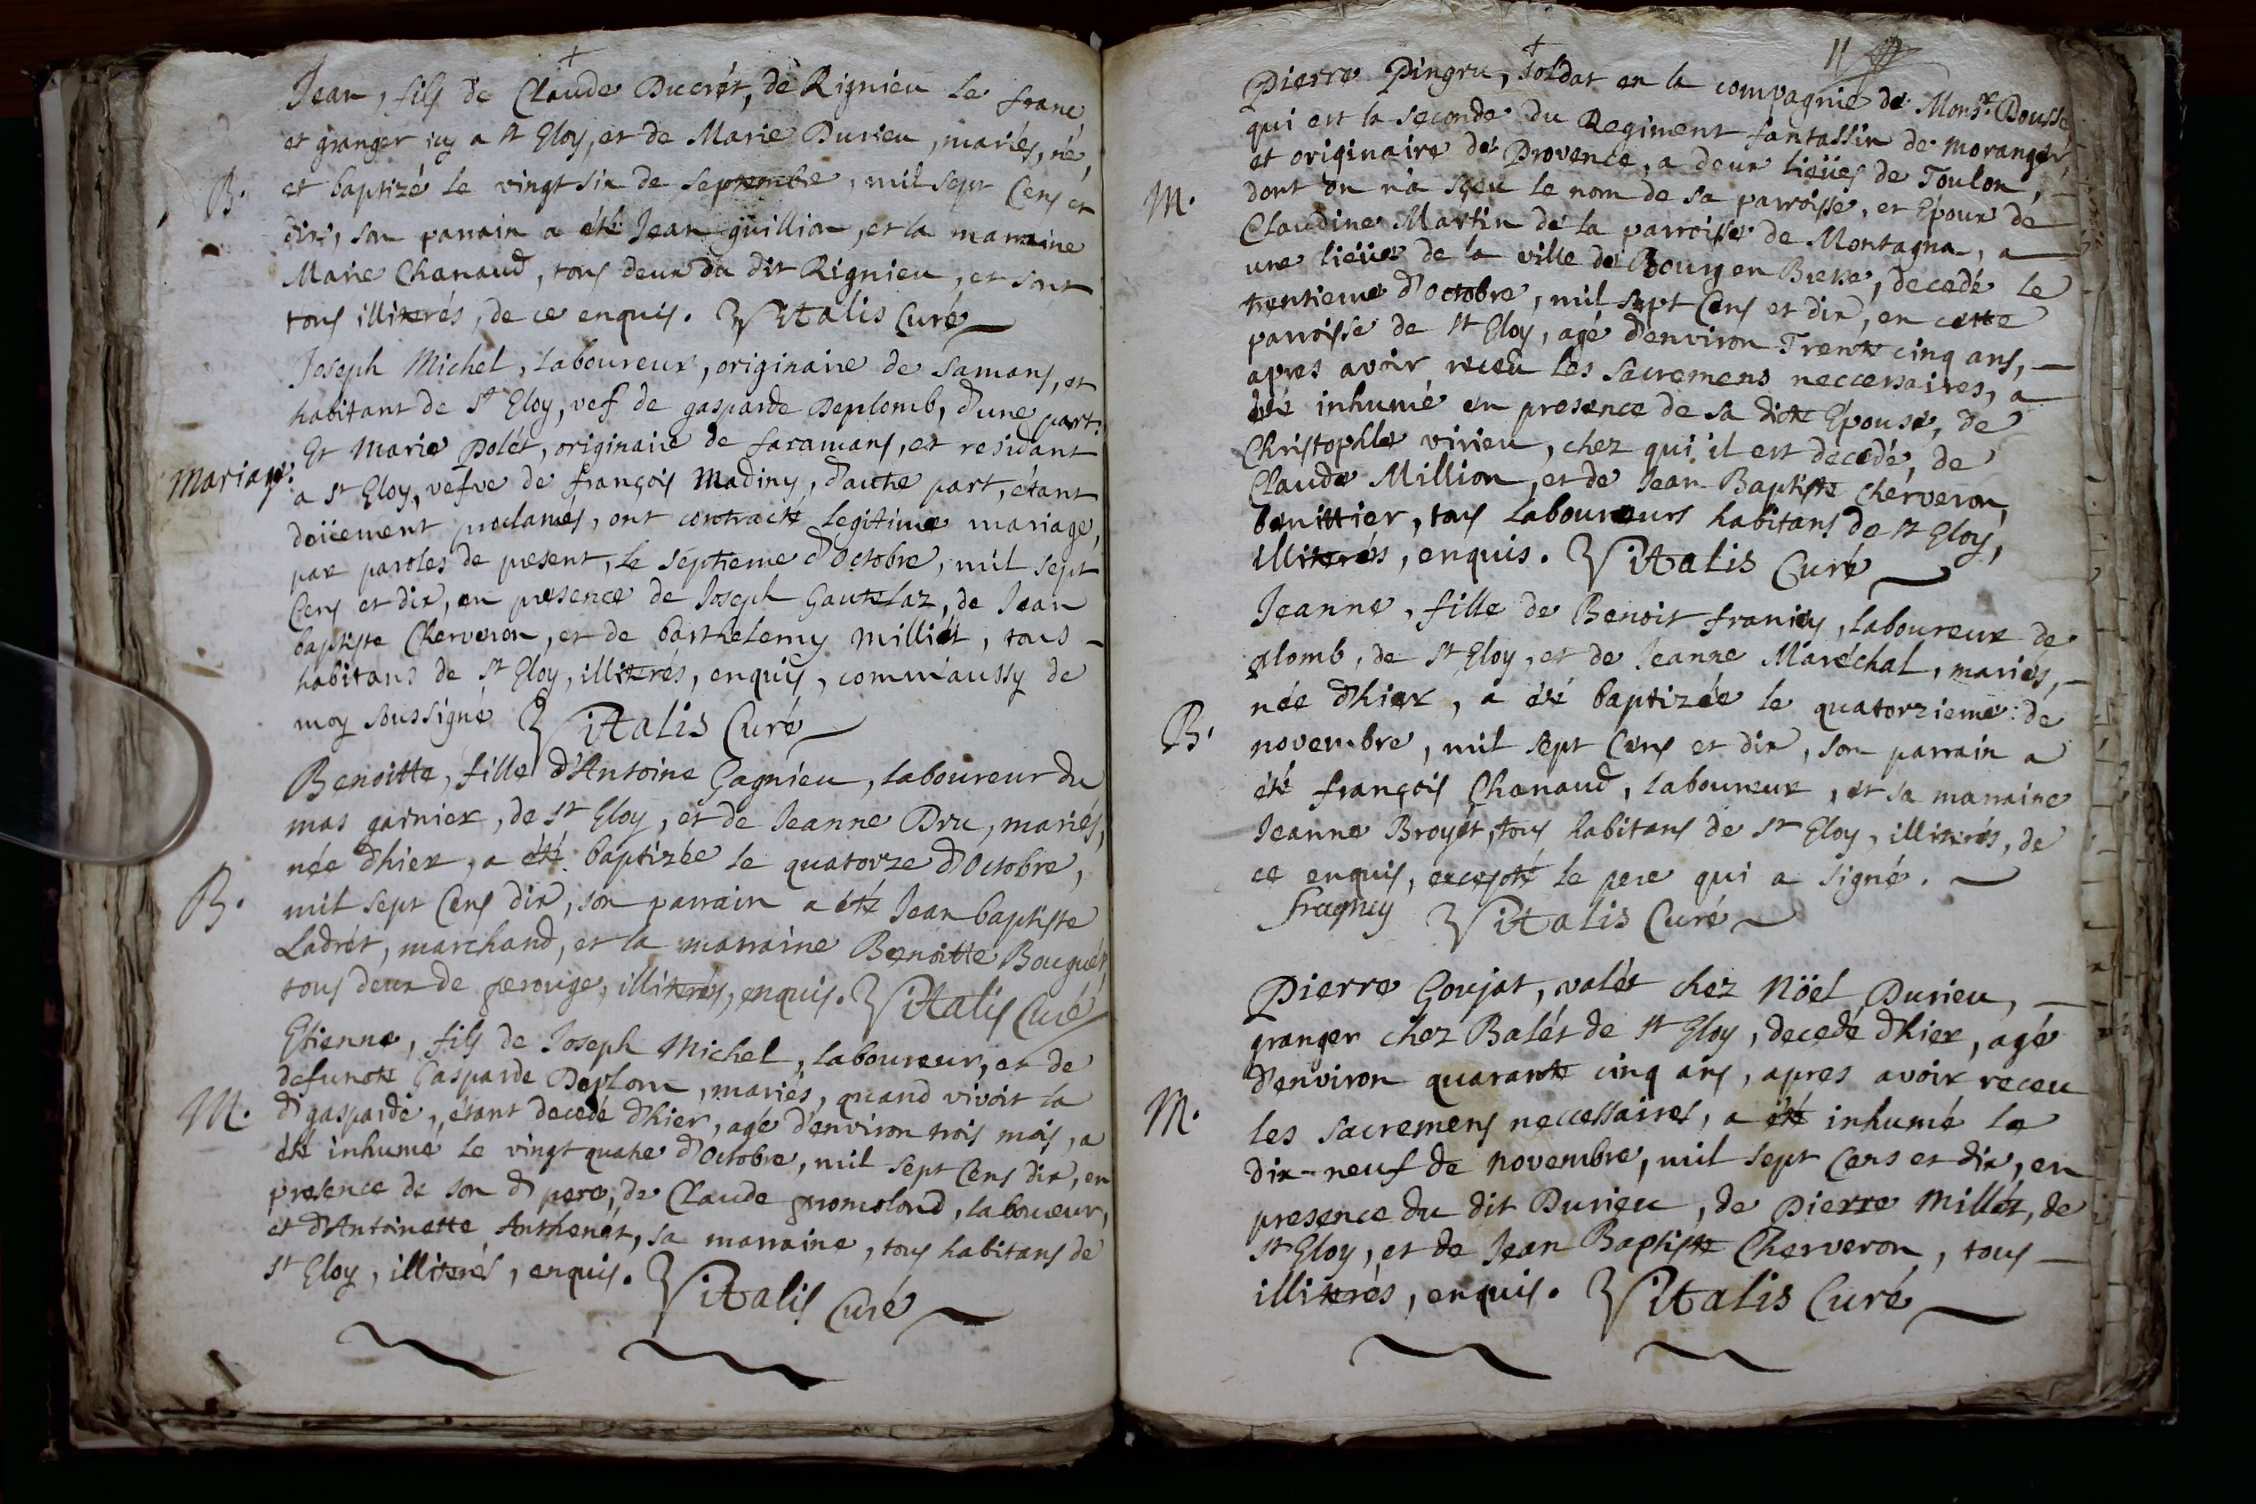 Jean, fils de Claude Ducrét, de Rignieu le franc
et granger icy a st Eloy, et de Marie Durieu, mariés, né
B. et baptizé le vingt six de septembre, mil sept Cens et
dix, son parrain a été Jean guillion, et la marraine
Marie Chanaud, tous deux du dit Rignieu, et sont
tous illiterés, de ce enquis. Vitalis Curé
Joseph Michel, Laboureur, originaire de Samans, et
habitant de st Eloy, vef de gasparde Deplomb, d'une part.
Et Marie Polét, originaire de faramans, et residant
Mariage. a st Eloy, vefve de françois Madiny, d'autre part, étant
deüement proclamés, ont contracté legitime mariage,
par paroles de present, le séptieme d'Octobre, mil sept
Cens et dix, en presence de Joseph Gautelaz, de Jean
baptiste Cherveron, et de barthelemy Milliét, tous
habitans de st Eloy, illiterés, enquis, comm'aussy de
moy soussigné Vitalis Curé
Benoitte, fille d'Antoine Gagnieu, Laboureur du
mas garnier, de st Eloy, et de Jeanne Dru, mariés,
née d'hier, a été baptizée le quatorze d'Octobre,
B. mil sept Cens dix, son parrain a été Jean baptiste
Ladrét, marchand, et la marraine Benoitte Bouguét,
tous deux de perouge, illiterés, enquis. Vitalis Curé
Etienne, fils de Joseph Michel, laboureur, et de
defuncte Gasparde Deplom, mariés, quand vivoit la
M. d gasparde, étant decedé d'hier, agé d'environ trois mois, a
été inhumé le vingt quatre d'Octobre, mil sept Cens dix, en
presence de son d pere, de Claude promolond, laboureur,
et d'Antoinette Anthenét, sa marraine, tous habitans de
st Eloy, illiterés, enquis. Vitalis Curé
11
Pierre Pingru, soldat en la compagnie de Monsr. Dousse
qui est la seconde du Regiment fantassin de morangér
et originaire de Provence, a deux lieües de Toulon,
M. dont on n'a sceu le nom de sa parroisse, et Epoux de
Claudine Martin de la parroisse de Montagna, a
une lieüe de la ville de Bourg en Bresse, decedé le
trentieme d'Octobre, mil sept Cens et dix, en cette
parroisse de st Eloy, agé d'environ Trente cinq ans,
apres avoir receu les Sacremens neccessaires, a
été inhumé en presence de sa dicte Epouse, de
Christophle virieu, chez qui il est decedé, de
Claude Million, et de Jean Baptiste Chérveron,
benittier, tous laboureurs habitans de st Eloy,
illiterés, enquis. Vitalis Curé
Jeanne, fille de Benoit franicy, laboureur de
plomb, de st Eloy, et de Jeanne Maréchal, mariés,
née d'hier, a été baptizée le quatorzieme de
B. novembre, mil sept Cens et dix, son parrain a
été françois Chanaud, laboureur, et sa marraine
Jeanne Broyét, tous habitans de st Eloy, illiterés, de
ce enquis, excepté le pere qui a signé.
Vitalis Curé
Pierre Goujat, valét chez Nöel Durieu,
granger chez Balét de st Eloy, decedé d'hier, agé
d'environ quarante cinq ans, apres avoir receu
M. les sacremens neccessaires, a été inhumé le
dix-neuf de novembre, mil sept Cens et dix, en
presence du dit Durieu, de Pierre Millét, de
st Eloy, et de Jean Baptiste Cherveron, tous
illiterés, enquis. Vitalis Curé